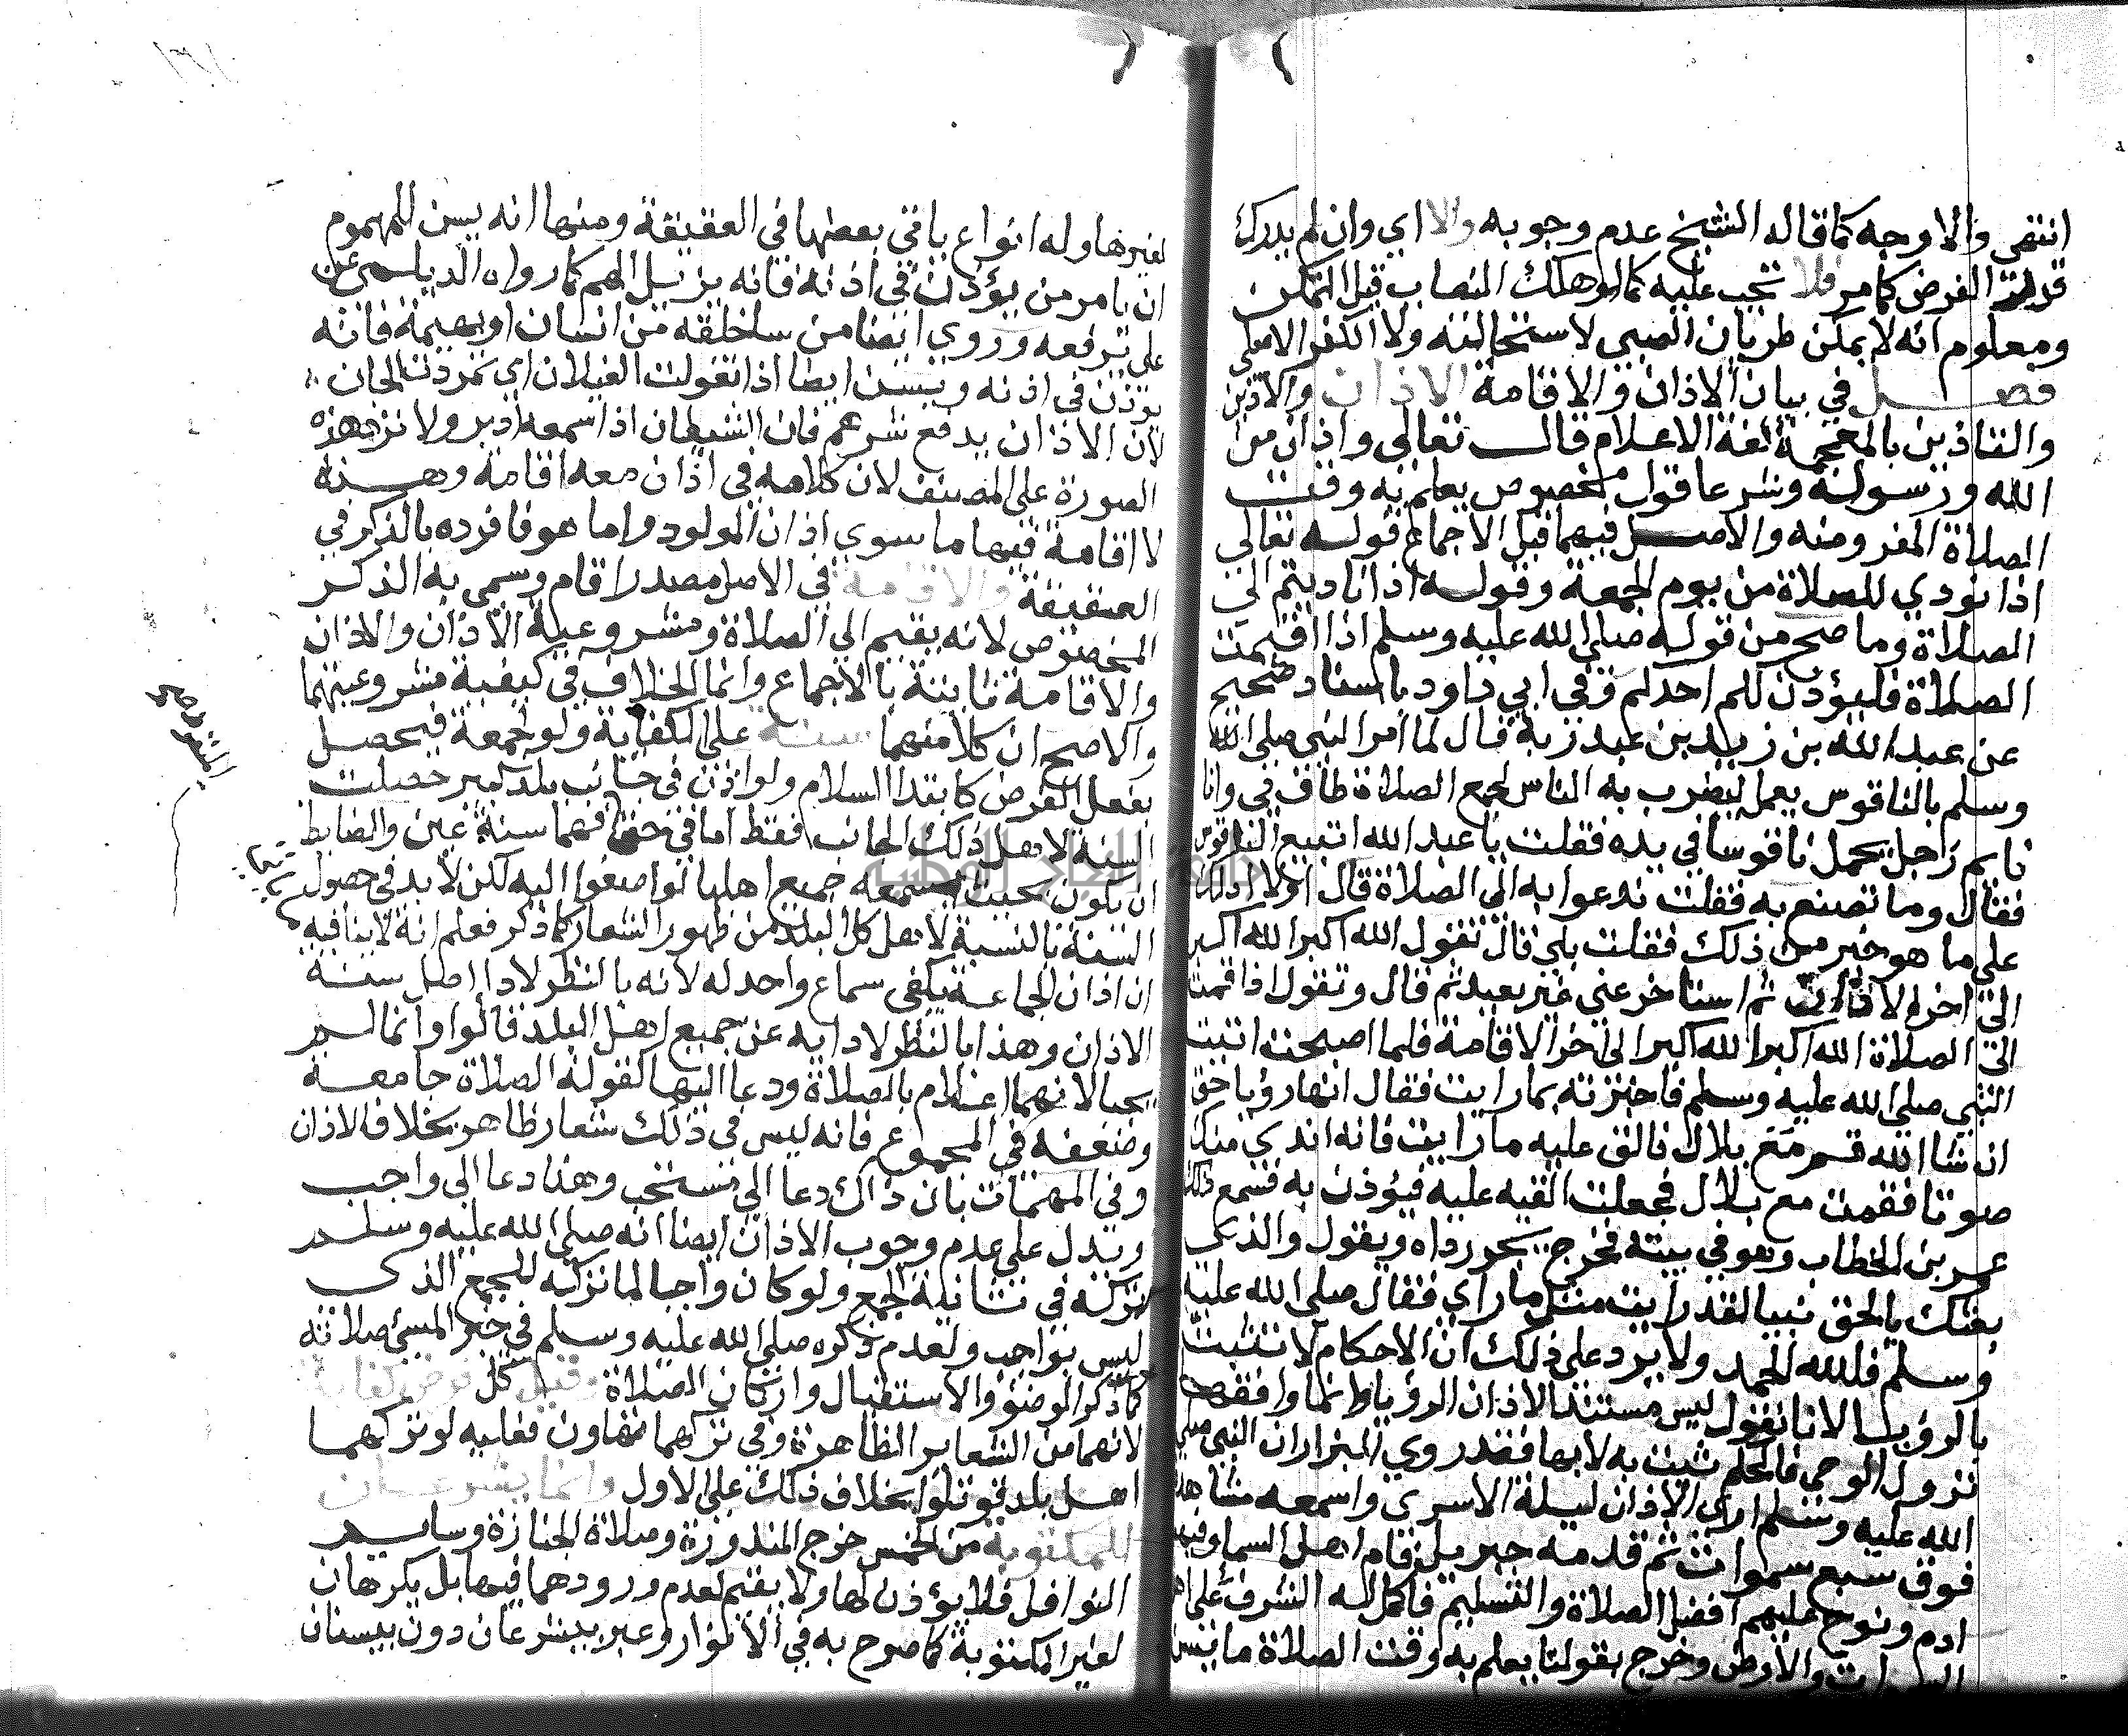 انتهى والاوجه كما قاله الشيخ عدم وجوبه والا اي وان لم يدرك
قدر الفرض كما مر فلا تجب عليه كما لو هلك النصاب قبل التمكن
ومعلوم انه لا يمكن طريان الصبي لاستحالته ولا الكفر الاصلي
فصل في بيان الاذان والاقامة الاذان والاذين
والتاذين بالمعجمة لغة الاعلام قال تعالى واذان من
الله ورسوله وشرعا قول مخصوص يعلم به وقت
الصلاة المفروضة والاصل فيهما قبل الاجماع قوله تعالى
اذا نودي للصلاة من يوم الجمعة وقوله اذا ناديتم الي
الصلاة وما صح من قوله صلى الله عليه وسلم اذا اقيمت
الصلاة فليؤذن لكم احدكم وفي ابي داود باسناد صحيح
عن عبد الله بن زيد بن عبد ربه قال لما امر النبي صلى الله
وسلم بالناقوس يعمل ليضرب به الناس لجمع الصلاة طاف بي وانا
نايم رجل يحمل ناقوسا في يده فقلت يا عبد الله اتبيع الناقوس
فقال وما تصنع به فقلت ندعوا به الى الصلاة قال اولا ادلك
على ما هو خير من ذلك فقلت بلى قال تقول الله اكبر الله اكبر
الى اخر الاذان ثم استاخر عني غير بعيد ثم قال وتقول اذا قمت
الى الصلاة الله اكبر الله اكبر الى اخر الاقامة فلما اصبحت اتيت
النبي صلى الله عليه وسلم فاخبرته بما رايت فقال انها رؤيا حق
ان شا الله قم مع بلال فالق عليه ما رايت فانه اندى منك
صوتا فقمت مع بلال فجعلت القيه عليه فيؤذن به فسمع ذلك
عمر بن الخطاب وهو في بيته فخرج يجر رداه ويقول والذي
بعثك بالحق نبيا لقد رايت مثل ما راى فقال صلى الله عليه
وسلم فلله الحمد ولا يرد على ذلك ان الاحكام لا تثبت
بالرؤيا لانا نقول ليس مستند الاذان الرؤيا وانما وافقها
نزول الوحي فالحكم ثبت به لا بها فقد روى البزار ان النبي صلى
الله عليه وسلم ارى الاذان ليلة الاسرى واسمعه مشاهدة
فوق سبع سموات ثم قدمه جبريل فام اهل السما وفيهم
ادم ونوح عليهم افضل الصلاة والتسليم فاكمل له الشرف على اهل
السموات والارض وخرج بقولنا يعلم به وقت الصلاة ما يسن
لغيرها وله انواع ياتي بعضها في العقيقة ومنها انه يسن للمهموم
ان يامر من يؤذن في اذنه فانه يزيل الهم كما رواه الديلمي عن
علي يرفعه وروي ايضا من سا خلقه من انسان او بهيمة فانه
يؤذن في اذنه ويسن ايضا اذا تغولت الغيلان اي تمردت الجان
لان الاذان يدفع شرهم فان الشيطان اذا سمعه ادبر ولا ترد هذه
الصورة على المصنف لان كلامه في اذان معه اقامة وهذه
لا اقامة فيها ما سوي اذان المولود واما هو فافرده بالذكر في
العقيقة والاقامة في الاصل مصدر اقام وسمي به الذكر
المخصوص لانه يقيم الى الصلاة ومشروعية الاذان والاذان
والاقامة ثابتة بالاجماع وانما الخلاف في كيفية مشروعيتهما
والاصح ان كلا منهما سنة على الكفاية ولو لجمعة فيحصل
بفعل البعض كابتدا السلام ولو اذن في جانب بلد كبير حصلت
السنة لاهل ذلك الجانب فقط اما في حق المنفرد فهما سنة عين والضابط
ان تكون بحيث يسمعه جميع اهلها لو اصغوا اليه لكن لا بد في حصول
السنة بالنسبة لاهل كل البلد من ظهور الشعار كما ذكر فعلم انه لا ينافيه
ان اذان الجماعة يكفي سماع واحد له لانه بالنظر لادا اصل سنة
الاذان وهذا بالنظر لادايه عن جميع اهل البلد قالوا وانما لم
يجبا لانهما اعلام بالصلاة ودعا اليها لقوله الصلاة جامعة
وضعفه في المجموع فانه ليس في ذلك شعار ظاهر بخلاف الاذان
وفي المهمات بان ذاك دعا الى مستحب وهذا دعا الى واجب
ويدل على عدم وجوب الاذان ايضا انه صلى الله عليه وسلم
تركه في ثانية الجمع ولو كان واجبا لما تركه للجمع الذي
ليس بواجب ولعدم ذكره صلى الله عليه وسلم في خبر المسئ صلاته
كما ذكر الوضوء والاستقبال واركان الصلاة وقيل كل فرض كفاية
لانهما من الشعاير الظاهرة وفي تركهما تهاون فعليه لو تركهما
اهل بلد قوتلوا بخلاف ذلك على الاول وانما يشرعان
للمكتوبة من الخمس خرج المنذورة وصلاة الجنازة وساير
النوافل فلا يؤذن لها ولا يقيم لعدم ورودهما فيها بل يكرهان
لغير المكتوبة كما صرح به في الانوار وعبر بيشرعان دون يسنان